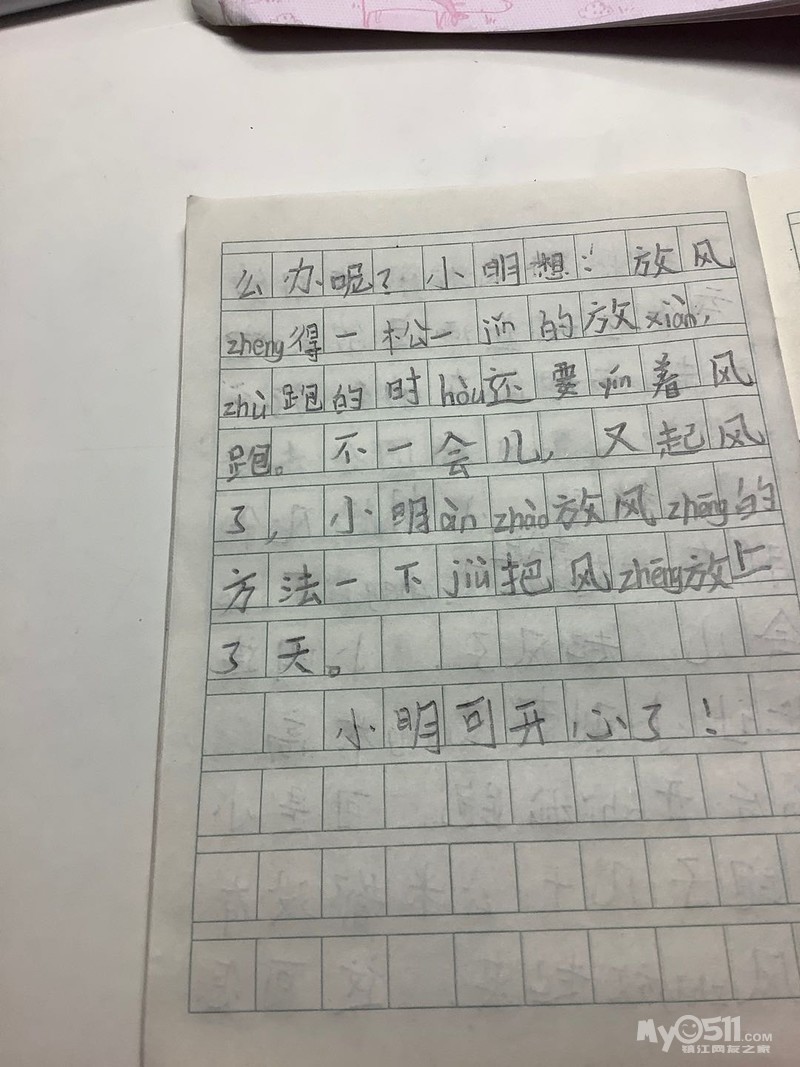 么办呢？小明想：放风
zheng得一松一jǐn的放xiàn，
zhù跑的时hòu还要yín着风
跑。不一会儿，又起风
了，小明àn zhào放风zhēng的
方法一下jiù把风zhēng放上
了天。
小明可开心了！
My0511.COM
镇江网友之家